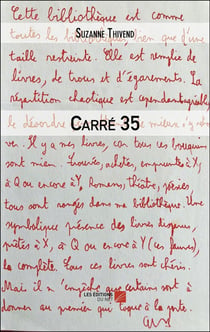 SUZANNE THIVEND
Cette bibliothèque est comme
toutes les bibliothèques bien que d'une
taille restreinte. Elle est remplie de
livres, de trous et d'égarements. La
répétition chaotique est cependant
CARRÉ 35
le désordre
Il y a mes livres, car tous ces bouquins
sont miens. Trouvés, achetés, empruntés à X,
à Q ou encore à Y, Romans, théâtre, poésies,
tous sont rangés dans ma bibliothèque. Une
symbolique présence des livres disparus,
prêtés à X, à Q ou encore à Y (ces jaunes),
la complète. Tous ces livres sont chéris.
Mais il n'empêche que certains sont à
donner au premier qui toque à la porte.
LES ÉDITIONS
DU NET